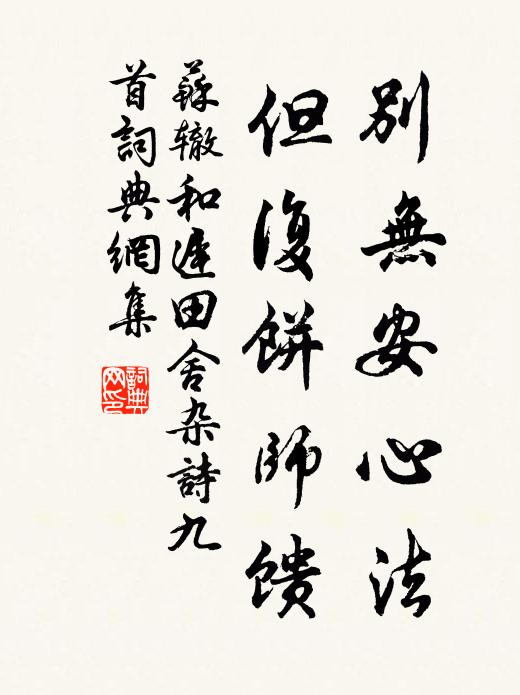 別無安心法
但復餅師饋
蘇辙和遲田舍杂詩九
首詞典網集
詞典网印